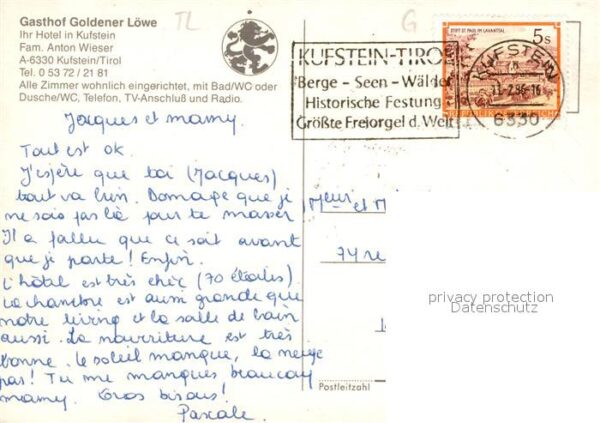 TL
G
Gasthof Goldener Löwe
Ihr Hotel in Kufstein
Fam. Anton Wieser
A-6330 Kufstein/Tirol
Tel. 0 53 72 / 21 81
Alle Zimmer wohnlich eingerichtet, mit Bad/WC oder
Dusche/WC, Telefon, TV-Anschluß und Radio.
KUFSTEIN-TIROL
Berge - Seen - Wälder
Historische Festung
Größte Freiorgel d. Welt
5s
STIFT ST. PAUL IM LAVANTTAL
KUFSTEIN
6330
Jacques et mamy.
Tout est ok.
J'espère que toi (Jacques)
tout va bien. Domage que je
ne sois pas là pour te masser
Il a fallu que ce soit avant
que je parte! Enfin.
L'hôtel est très chic (70 étoiles).
La chambre est aussi grande que
notre living et la salle de bain
aussi. La nourriture est très
bonne. le soleil manque, la neige
pas! Tu me manques beaucoup
mamy. Gros bisous!
Pascale.
Meur et M
74 re
Postleitzahl
privacy protection
Datenschutz